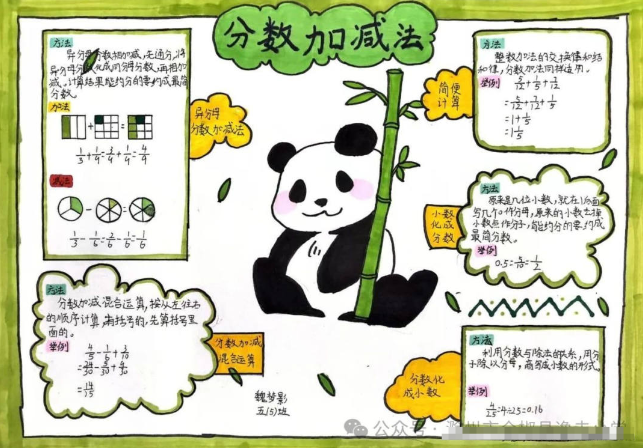 分数加减法
方法
异分母分数相加减,先通分,将
异分母分数化成同分母分数,再相加
减。计算结果能约分的要约成最简
分数。
加法
1/3+1/9=3/9+1/9=4/9
减法
1/3-1/6=2/6-1/6=1/6
异分母
分数加减法
简便
计算
方法
整数加法的交换律和结
合律,分数加法同样适用。
举例
5/12+1/5+7/12
=5/12+7/12+1/5
=1+1/5
=1 1/5
小数
化成
分数
方法
原来是几位小数,就在1后面
写几个0作分母,原来的小数去掉
小数点作分子,能约分的要约成
最简分数。
举例
0.5=5/10=1/2
方法
分数加减混合运算,按从左往右
的顺序计算,有括号的,先算括号里
面的。
举例
4/5-1/6+3/10
=24/30-5/30+9/30
=14/15
分数加减
混合运算
魏梦影
五(5)班
分数化
成小数
方法
利用分数与除法的关系,用分
子除以分母,商写成小数的形式。
举例
4/25=4÷25=0.16
公众号